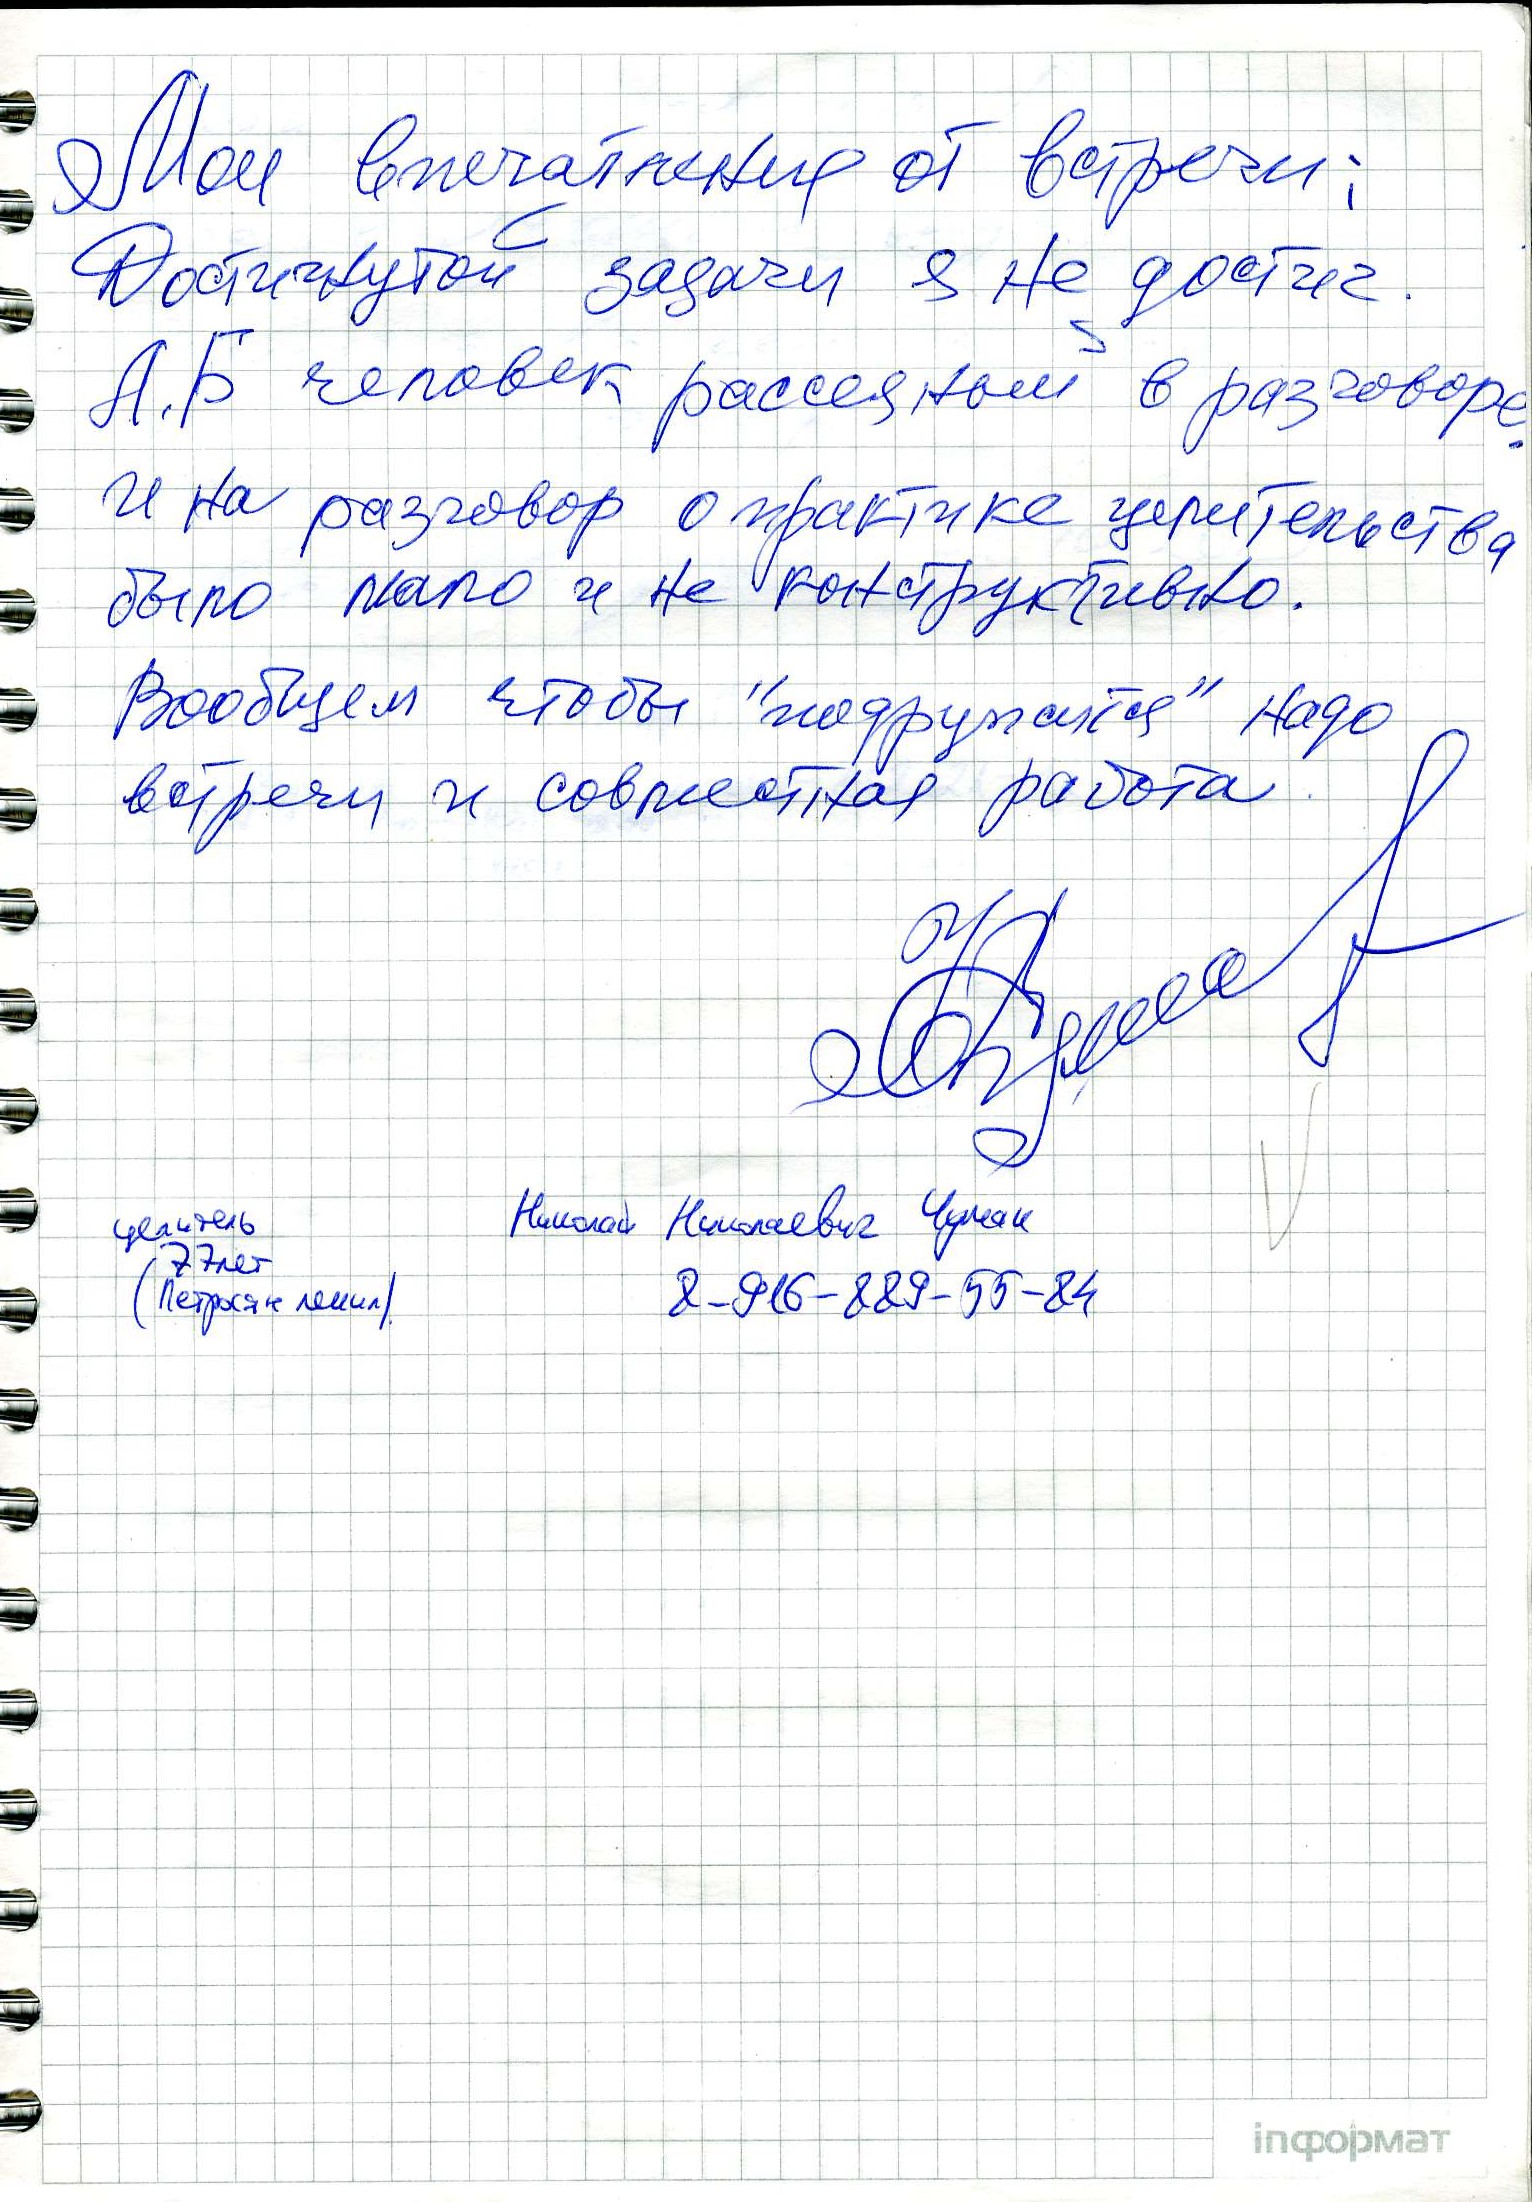 Мои впечатления от встречи:
Достигнутой задачи я не достиг.
А.Б человек рассеяный в разговоре.
и на разговор о практике целительства
было мало и не конструктивно.
Вообщем чтобы "подружится" надо
встречи и совместная работа.
целитель Николай Николаевич Чумак
77 лет
(Петросян лечил) 8-916-889-55-84
inформат